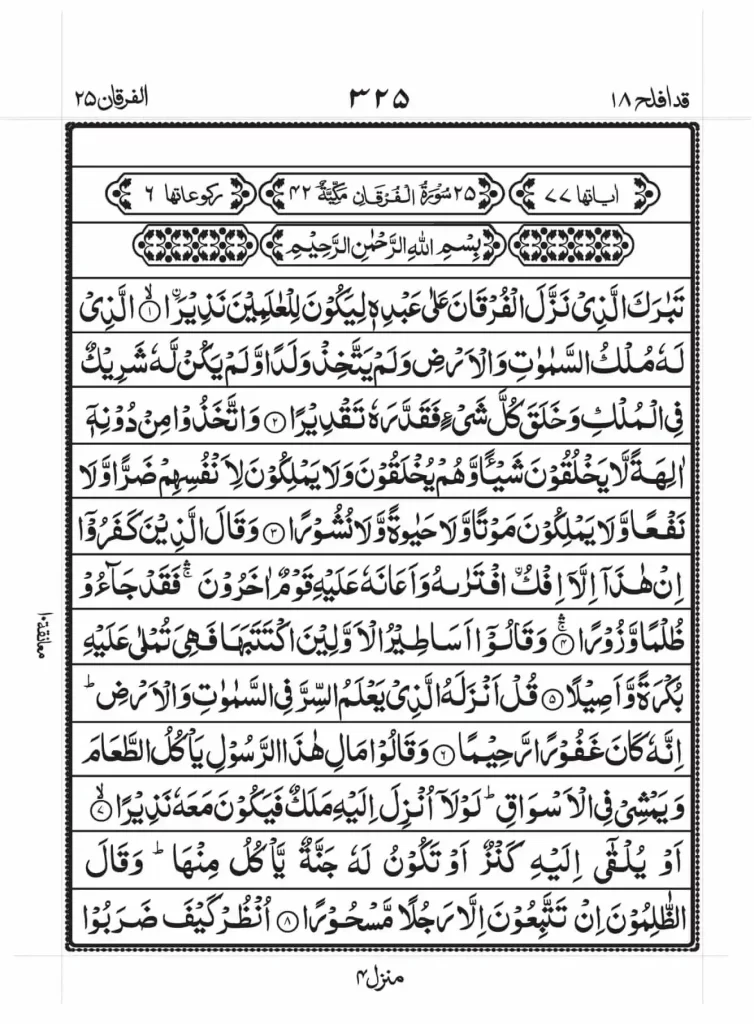 قدافلح ١٨
٣٢٥
الفرقان ٢٥
اٰیاتها ٧٧
٢٥ سُوْرَةُ الْفُرْقَانِ مَكِّيَّةٌ ٤٢
ركوعاتها ٦
بِسْمِ اللّٰهِ الرَّحْمٰنِ الرَّحِيْمِ
تَبٰرَكَ الَّذِیْ نَزَّلَ الْفُرْقَانَ عَلٰی عَبْدِهٖ لِیَكُوْنَ لِلْعٰلَمِیْنَ نَذِیْرَاۙ ﴿١﴾ الَّذِیْ
لَهٗ مُلْكُ السَّمٰوٰتِ وَالْاَرْضِ وَلَمْ یَتَّخِذْ وَلَدًا وَّلَمْ یَكُنْ لَّهٗ شَرِیْكٌ
فِی الْمُلْكِ وَخَلَقَ كُلَّ شَیْءٍ فَقَدَّرَهٗ تَقْدِیْرًا ﴿٢﴾ وَاتَّخَذُوْا مِنْ دُوْنِهٖۤ
اٰلِهَةً لَّا یَخْلُقُوْنَ شَیْـًٔا وَّهُمْ یُخْلَقُوْنَ وَلَا یَمْلِكُوْنَ لِاَنْفُسِهِمْ ضَرًّا وَّلَا
نَفْعًا وَّلَا یَمْلِكُوْنَ مَوْتًا وَّلَا حَیٰوةً وَّلَا نُشُوْرًا ﴿٣﴾ وَقَالَ الَّذِیْنَ كَفَرُوْۤا
اِنْ هٰذَاۤ اِلَّاۤ اِفْكُ اۨفْتَرٰىهُ وَاَعَانَهٗ عَلَیْهِ قَوْمٌ اٰخَرُوْنَ ۛۚ فَقَدْ جَآءُوْ
ظُلْمًا وَّزُوْرًا ۛۚ ﴿٤﴾ وَقَالُوْۤا اَسَاطِیْرُ الْاَوَّلِیْنَ اكْتَتَبَهَا فَهِیَ تُمْلٰی عَلَیْهِ
معانقة ١٠
بُكْرَةً وَّاَصِیْلًا ﴿٥﴾ قُلْ اَنْزَلَهُ الَّذِیْ یَعْلَمُ السِّرَّ فِی السَّمٰوٰتِ وَالْاَرْضِ ؕ
اِنَّهٗ كَانَ غَفُوْرًا رَّحِیْمًا ﴿٦﴾ وَقَالُوْا مَالِ هٰذَا الرَّسُوْلِ یَاْكُلُ الطَّعَامَ
وَیَمْشِیْ فِی الْاَسْوَاقِ ؕ لَوْلَاۤ اُنْزِلَ اِلَیْهِ مَلَكٌ فَیَكُوْنَ مَعَهٗ نَذِیْرًاۙ ﴿٧﴾
اَوْ یُلْقٰۤی اِلَیْهِ كَنْزٌ اَوْ تَكُوْنُ لَهٗ جَنَّةٌ یَّاْكُلُ مِنْهَا ؕ وَقَالَ
الظّٰلِمُوْنَ اِنْ تَتَّبِعُوْنَ اِلَّا رَجُلًا مَّسْحُوْرًا ﴿٨﴾ اُنْظُرْ كَیْفَ ضَرَبُوْا
منزل ٤